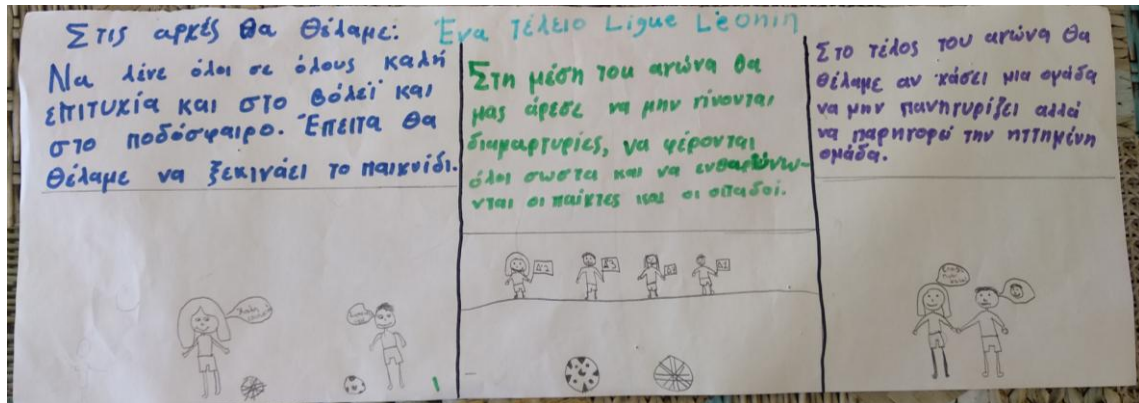 Ένα τέλειο Ligue Léonin
Στις αρχές θα θέλαμε:
Να λένε όλοι σε όλους καλή
επιτυχία και στο βόλεϊ και
στο ποδόσφαιρο. Έπειτα θα
θέλαμε να ξεκινάει το παιχνίδι.
Στη μέση του αγώνα θα
μας άρεσε να μην γίνονται
διαμαρτυρίες, να φέρονται
όλοι σωστα και να ενθαρρύνω-
νται οι παίκτες και οι οπαδοί.
Στο τέλος του αγώνα θα
θέλαμε αν χάσει μια ομάδα
να μην πανηγυρίζει αλλά
να παρηγορεί την ηττημένη
ομάδα.